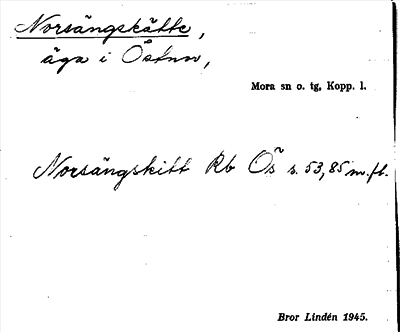 Norsängskätte,
äga i Östnor,
Mora sn o. tg, Kopp. l.
Norsängskitt Rb Ös s. 53, 85 m. fl.
Bror Lindén 1945.